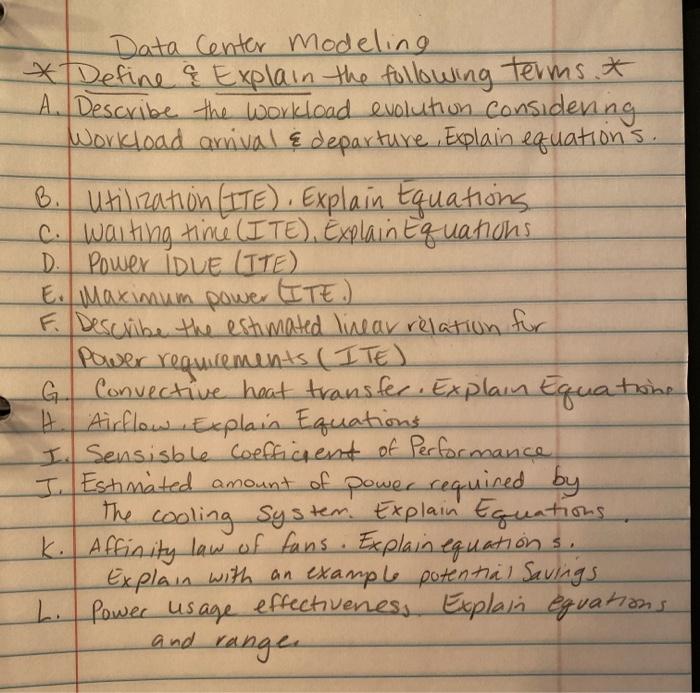 Data Center Modeling
* Define & Explain the following terms. *
A. Describe the workload evolution considering
workload arrival & departure. Explain equations.
B. Utilization (ITE). Explain Equations
C. Waiting time (ITE). Explain Equations
D. Power IDLE (ITE)
E. Maximum power (ITE.)
F. Describe the estimated linear relation for
Power requirements (ITE)
G. Convective heat transfer. Explain Equations
H. Airflow. Explain Equations
I. Sensisble Coefficient of Performance
J. Estimated amount of power required by
The cooling System. Explain Equations.
K. Affinity law of fans. Explain equations.
Explain with an example potential Savings
L. Power usage effectiveness. Explain equations
and range.